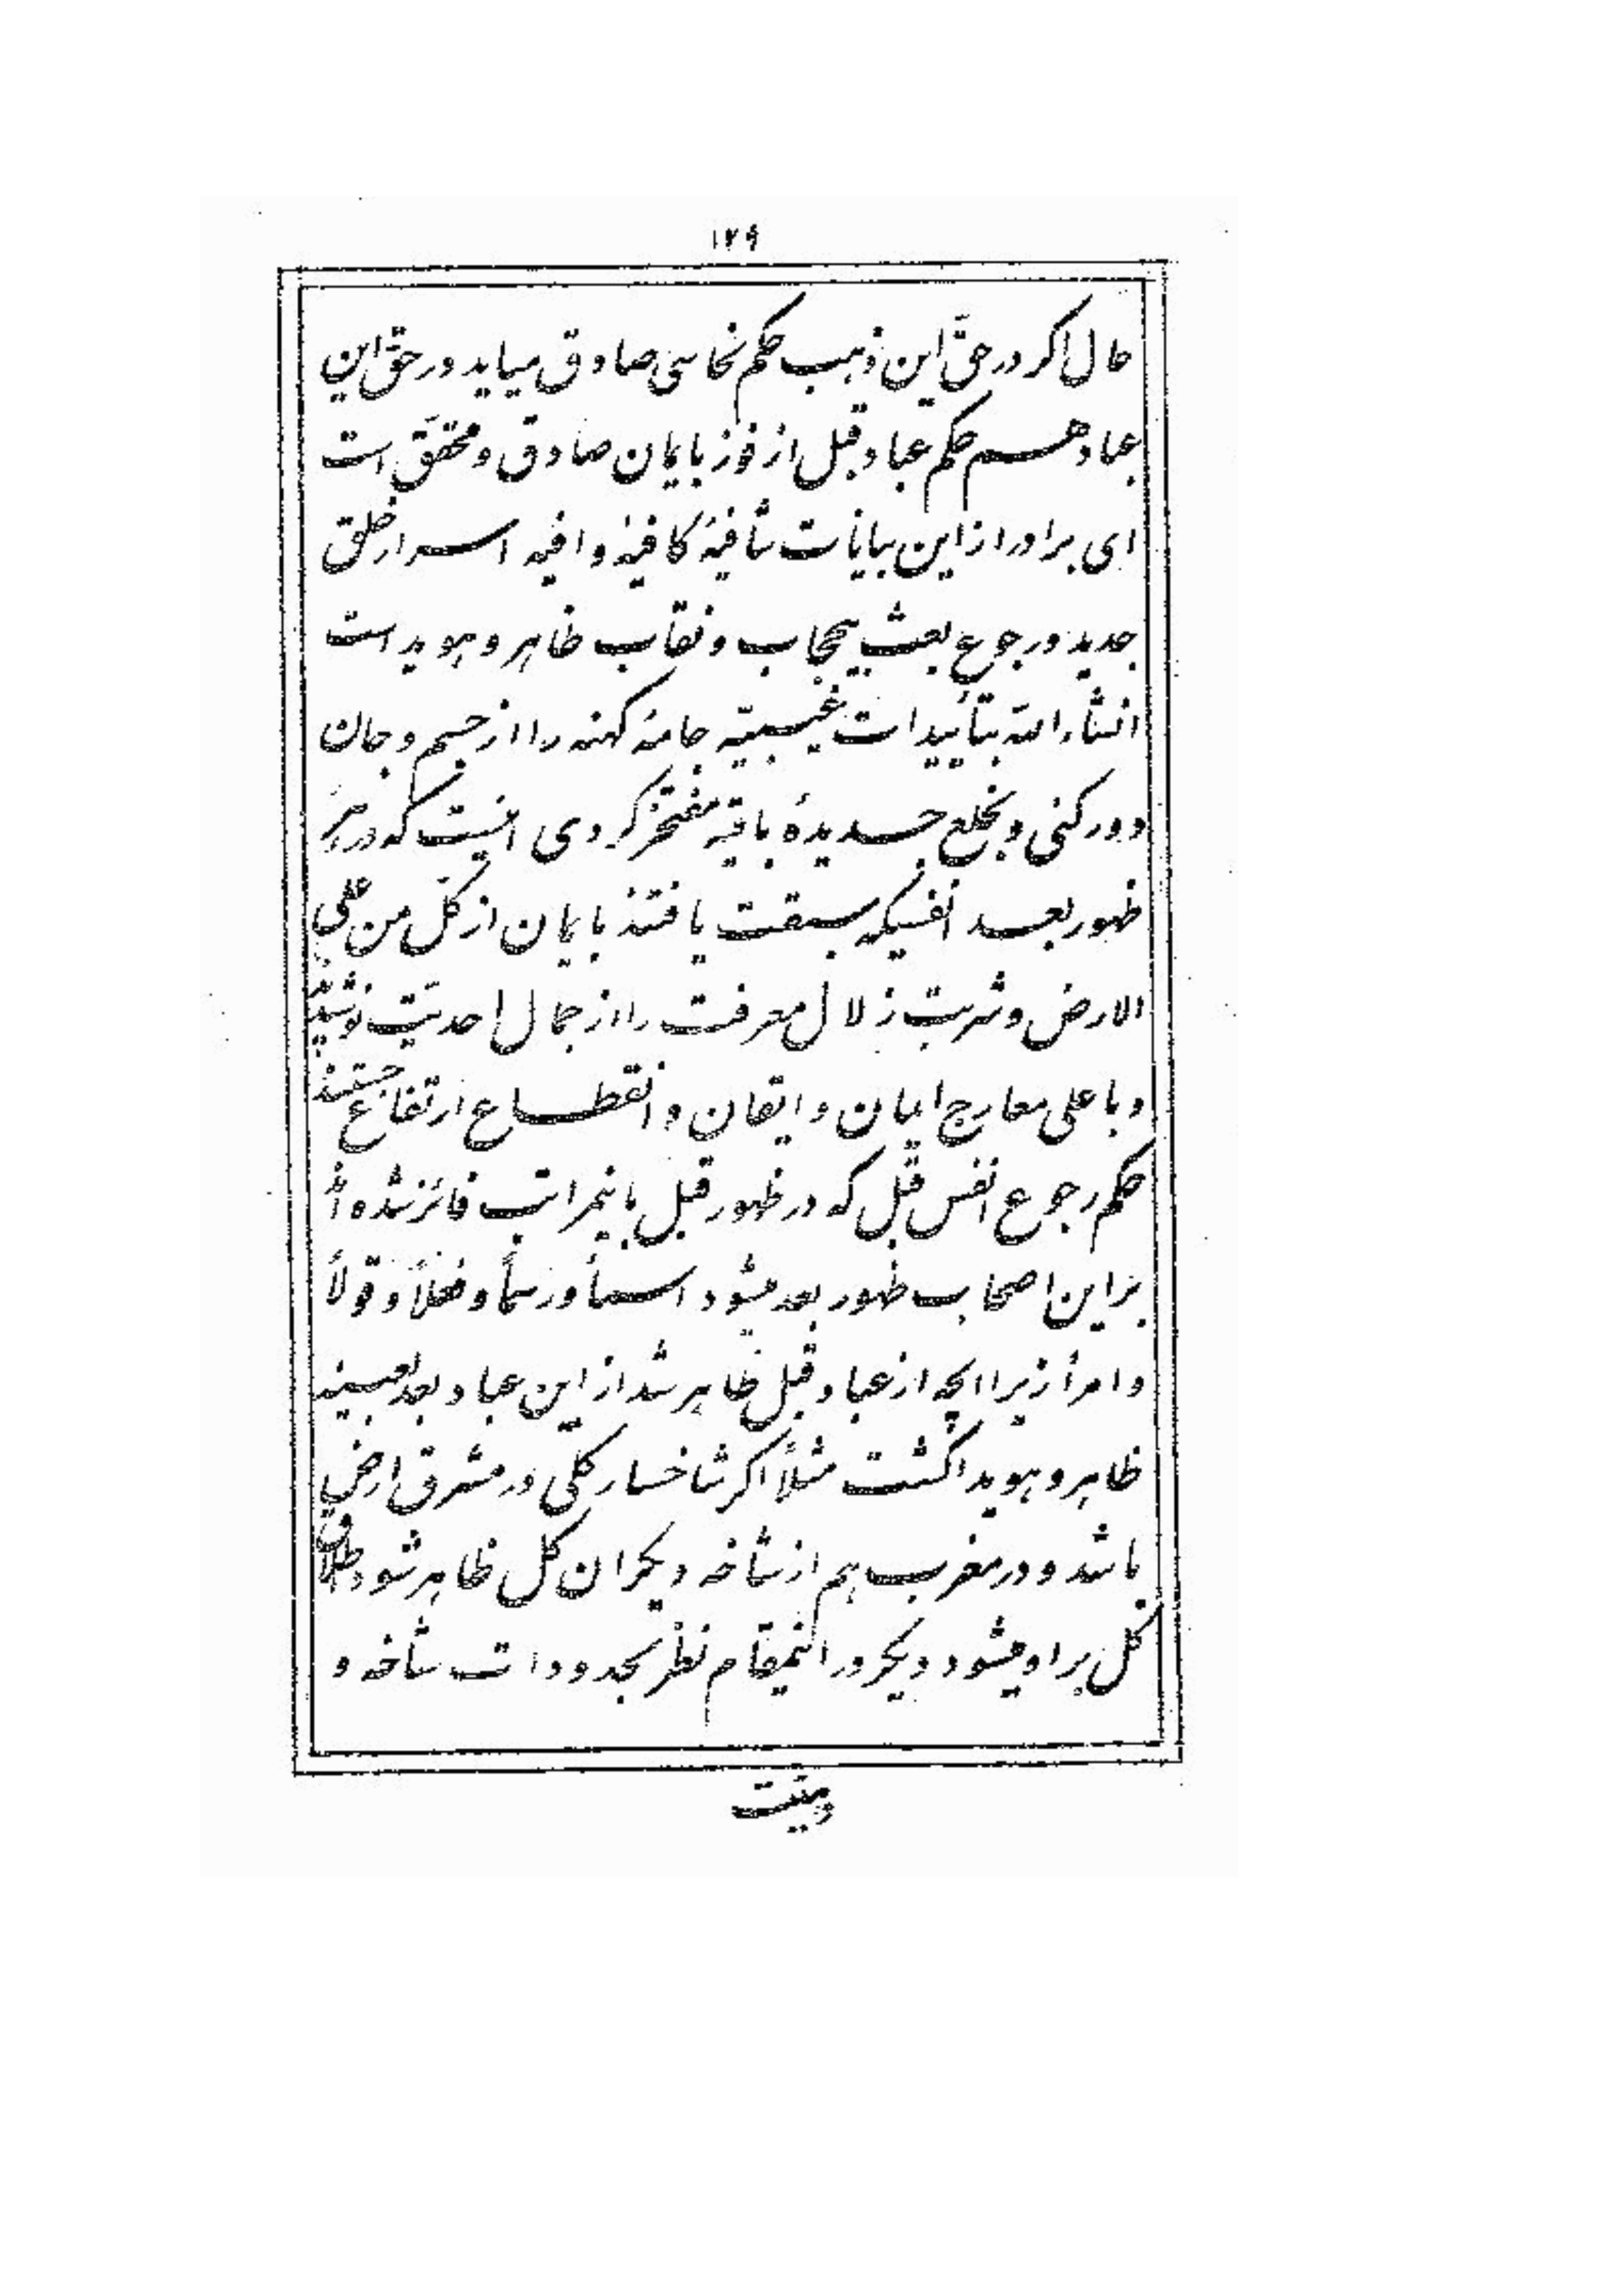 ١٢٩
حال اکر در حقّ این ذهب حکم نحاسی صادق میاید در حقّ این
عباد هم حکم عباد قبل از فوز بایمان صادق و محقّق است
ای برادر از این بیانات شافیهٔ کافیهٔ وافیه اسرار خلق
جدید و رجوع بعث بیحجاب و نقاب ظاهر و هویداست
انشاءالله بتأییدات غیبیّه جامهٔ کهنه را از جسم و جان
دور کنی و بخلع جدیدهٔ باقیه مفتخر کردی اینست که در هر
ظهور بعد انفسیکه سبقت یافتند بایمان از کلّ من علی
الارض و شربت زلال معرفت را از جمال احدیّت نوشیدند
و باعلی معارج ایمان و ایقان و انقطاع ارتفاع جستند
حکم رجوع انفس قبل که در ظهور قبل باینمراتب فائز شده‌اند
بر این اصحاب ظهور بعد میشود اسماً و رسماً و فعلاً و قولاً
و امراً زیرا آنچه از عباد قبل ظاهر شد از این عباد بعد بعینه
ظاهر و هویدا کشت مثلاً اکر شاخسار کلی در مشرق ارض
باشد و در مغرب هم از شاخه دیکر آن کل ظاهر شود اطلاق
کل بر او میشود دیکر در اینمقام نظر بحدودات شاخه و
هیئت